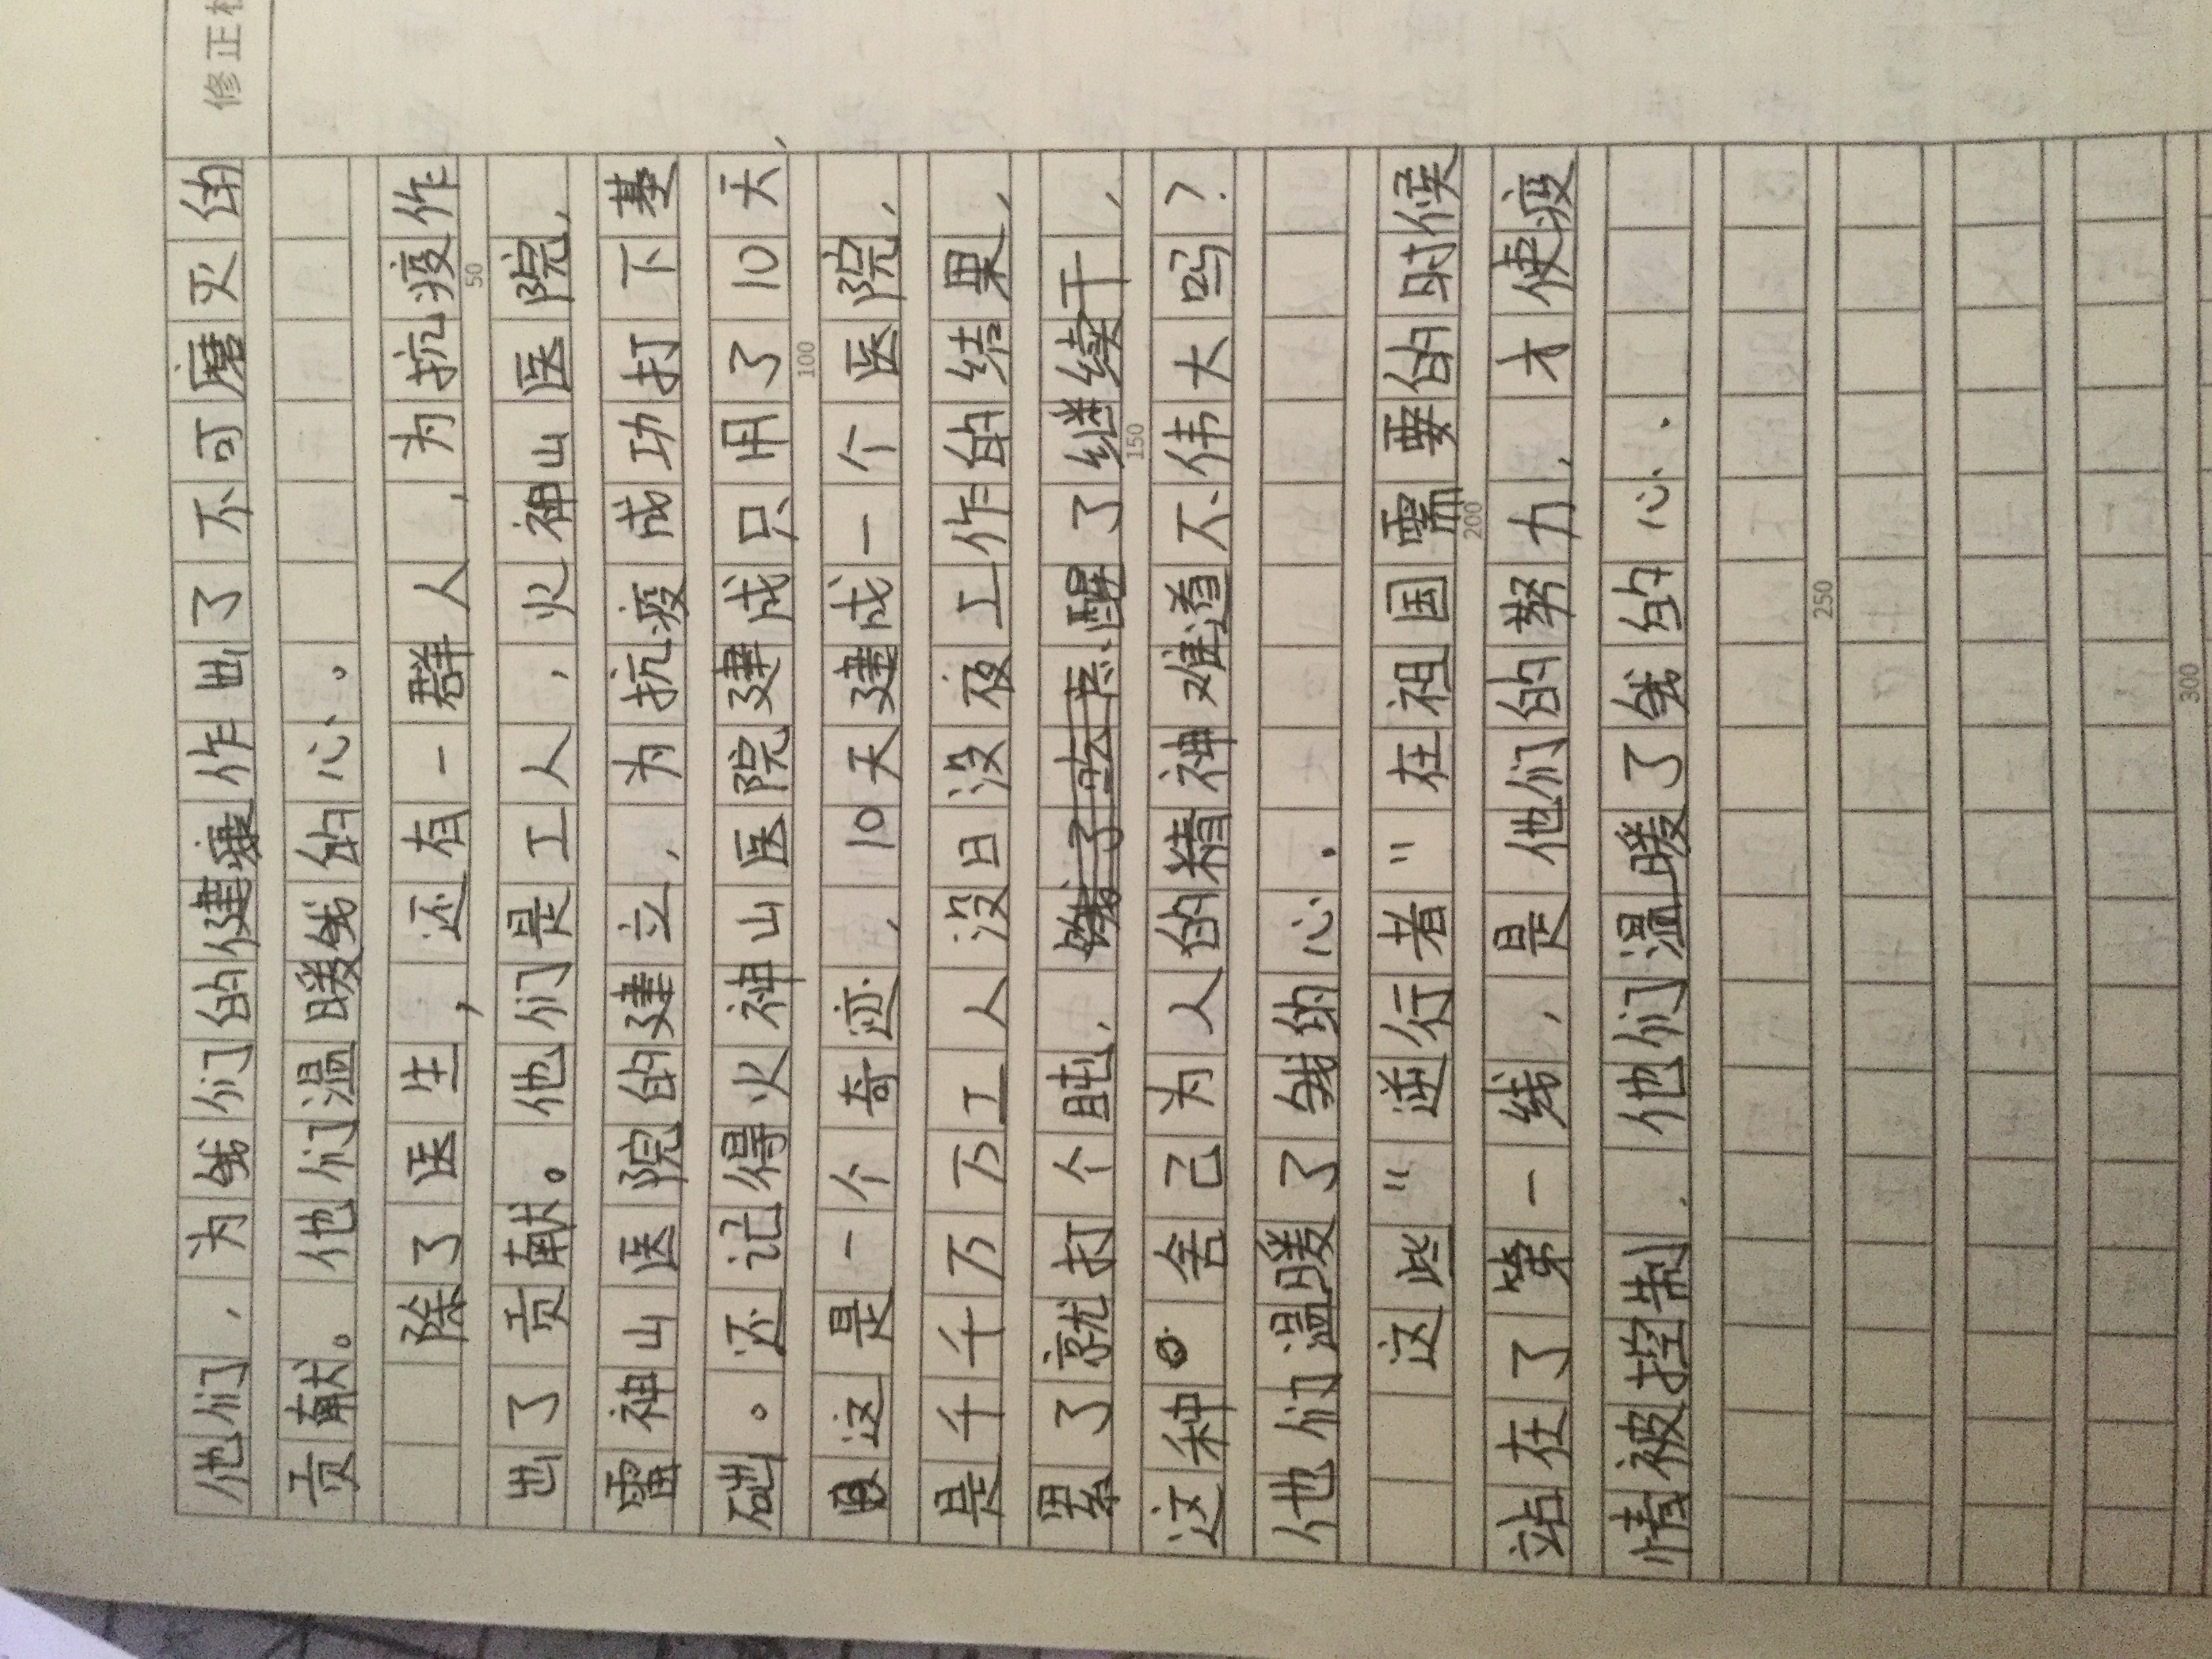 修正
他们，为我们的健康作出了不可磨灭的
贡献。他们温暖我的心。
除了医生，还有一群人，为抗疫作
50
出了贡献。他们是工人，火神山医院，
雷神山医院的建立，为抗疫成功打下基
础。还记得火神山医院建成只用了10天，
100
这是一个奇迹，10天建成一个医院，
是千千万万工人没日没夜工作的结果，
累了就打个盹，醒了继续干，
150
这种舍己为人的精神难道不伟大吗？
他们温暖了我的心．
这些"逆行者"在祖国需要的时候
200
站在了第一线，是他们的努力，才使疫
情被控制．他们温暖了我的心．
250
300